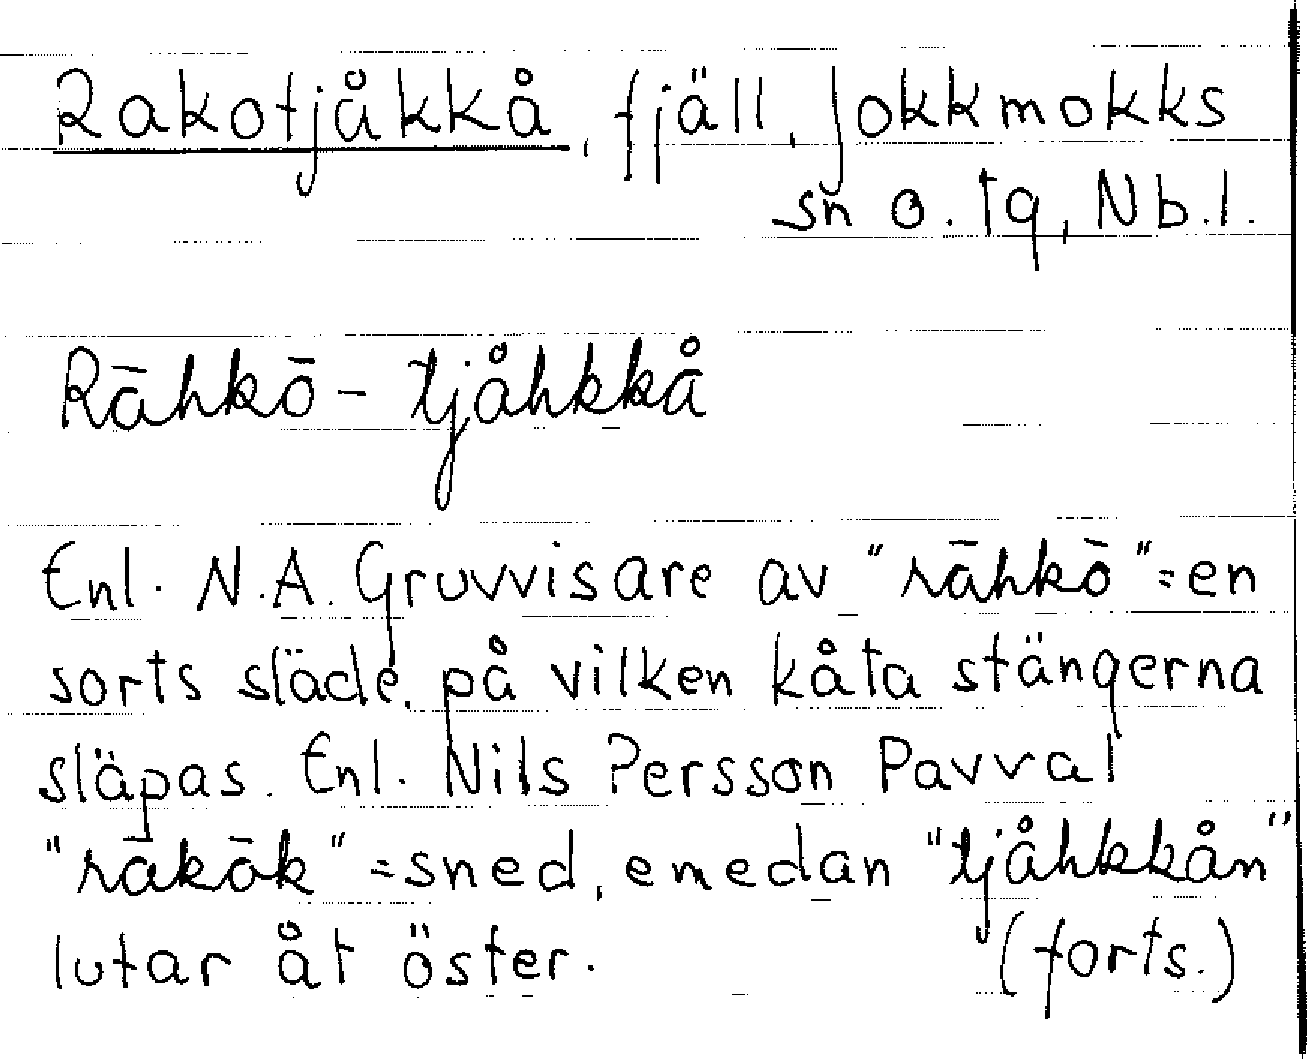 Rakotjåkkå, fjäll, Jokkmokks
sn o. tg, Nb.l.
Rāhkō - tjåhkkå
Enl. N.A. Gruvvisare av "rāhkō" = en
sorts släde, på vilken kåta stängerna
släpas. Enl. Nils Persson Pavval
"rākōk" = sned, emedan "tjåhkkån"
lutar åt öster. (forts.)